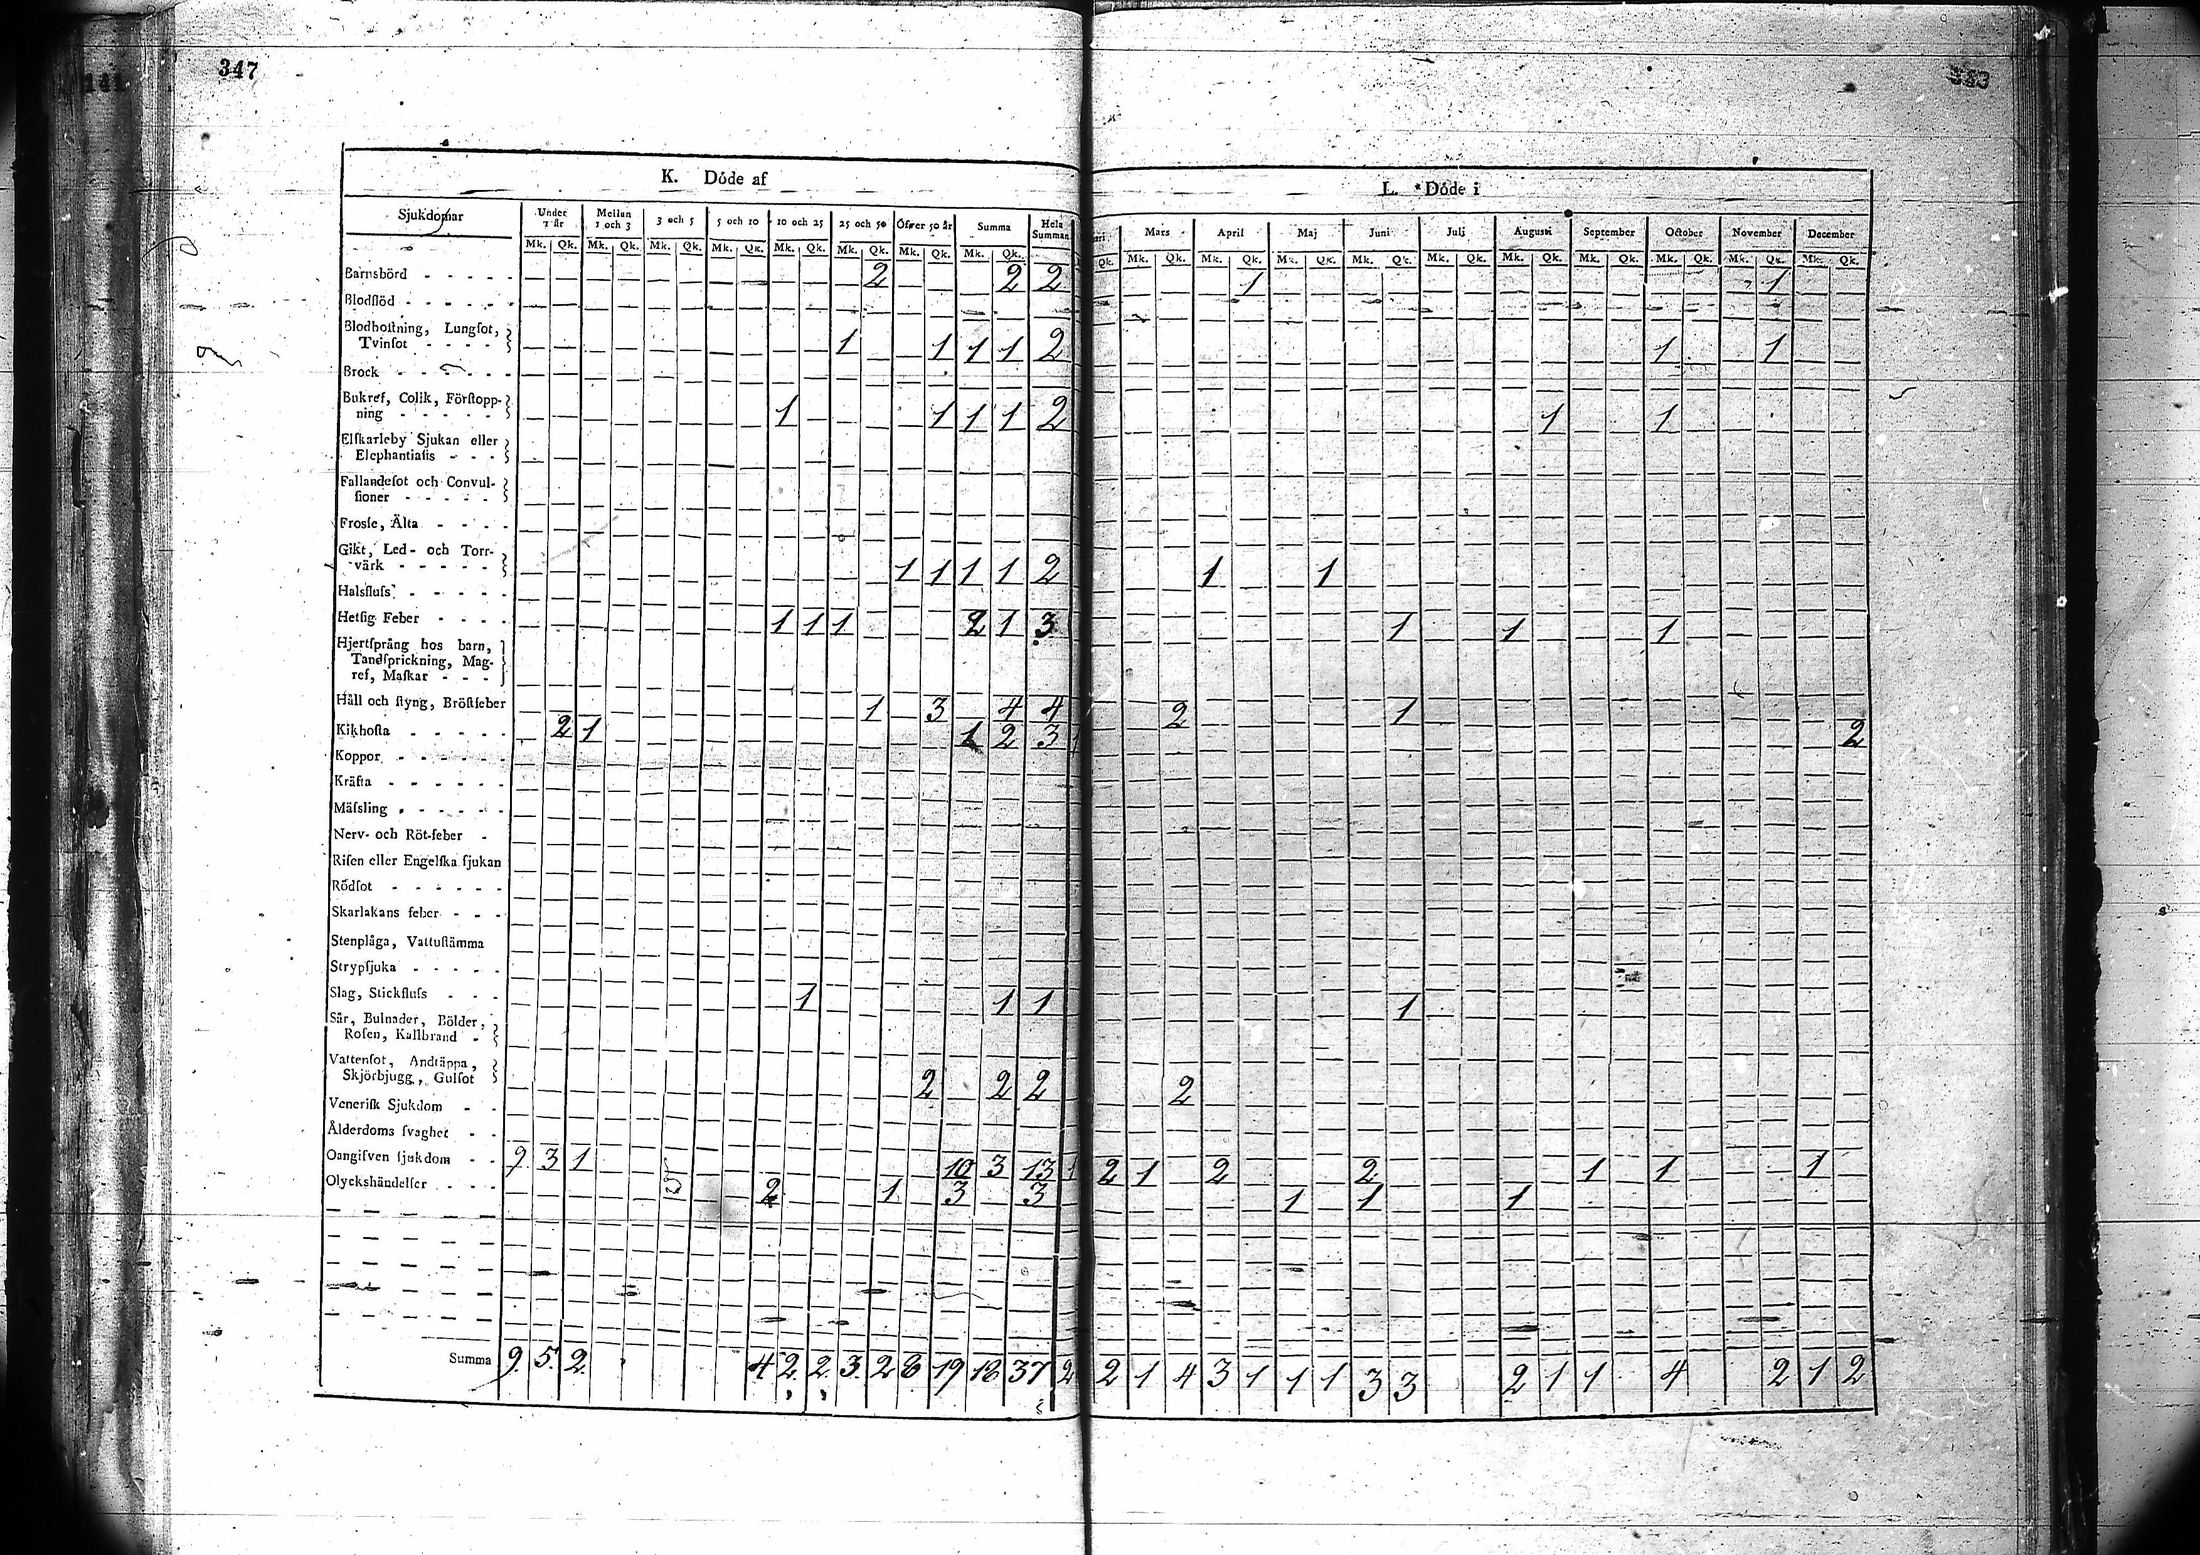 347
K. Döde af
Sjukdomar Under 1 år Mellan 1 och 3 3 och 5 5 och 10 10 och 25 25 och 50 Öfver 50 år Summa Hela Summan
Mk. Qk. Mk. Qk. Mk. Qk. Mk. Qk. Mk. Qk. Mk. Qk. Mk. Qk. Mk. Qk.
Barnsbörd - - - - - 2 2 2
Blodflöd - - - - - -
Blodhoſtning, Lungſot,
Tvinſot - - - - 1 1 1 1 2
Brock - - - - - -
Bukref, Colik, Förſtopp-
ning - - - - - 1 1 1 1 2
Elſkarleby Sjukan eller
Elephantiaſis - - -
Fallandeſot och Convul-
ſioner - - - - -
Froſſe, Älta - - - -
Gikt, Led- och Torr-
värk - - - - - 1 1 1 1 2
Halsfluſs - - - - -
Hetſig Feber - - - - 1 1 1 2 1 3
Hjertſprång hos barn,
Tandſprickning, Mag-
ref, Maſkar - - -
Håll och ſtyng, Bröſtfeber 1 3 4 4
Kikhoſta - - - - - 2 1 1 2 3
Koppor - - - - - -
Kräfta - - - - - -
Mäſsling - - - - -
Nerv- och Röt-feber -
Riſen eller Engelſka ſjukan
Rödſot - - - - - -
Skarlakans feber - - -
Stenplåga, Vattuſtämma
Strypſjuka - - - - -
Slag, Stickfluſs - - - 1 1 1
Sår, Bulnader, Bölder,
Roſen, Kallbrand -
Vattenſot, Andtäppa,
Skjörbjugg, Gulſot 2 2 2
Veneriſk Sjukdom - -
Ålderdoms ſvaghet - -
Oangifven ſjukdom - - 9 3 1 10 3 13
Olyckshändelſer - - - 2 1 3 3
Summa 9. 5. 2. 4 2. 2. 3. 2 8 19 18 37
L. Döde i
Mars April Maj Juni Juli Auguſti September October November December
Qk. Mk. Qk. Mk. Qk. Mk. Qk. Mk. Qk. Mk. Qk. Mk. Qk. Mk. Qk. Mk. Qk. Mk. Qk. Mk. Qk.
1 1
1 1
1 1
1 1
1 1 1
2 1
1 2
1
2
1 2 1 2 2 1 1 1
1 1 1
2 2 1 4 3 1 1 1 3 3 2 1 1 4 2 1 2